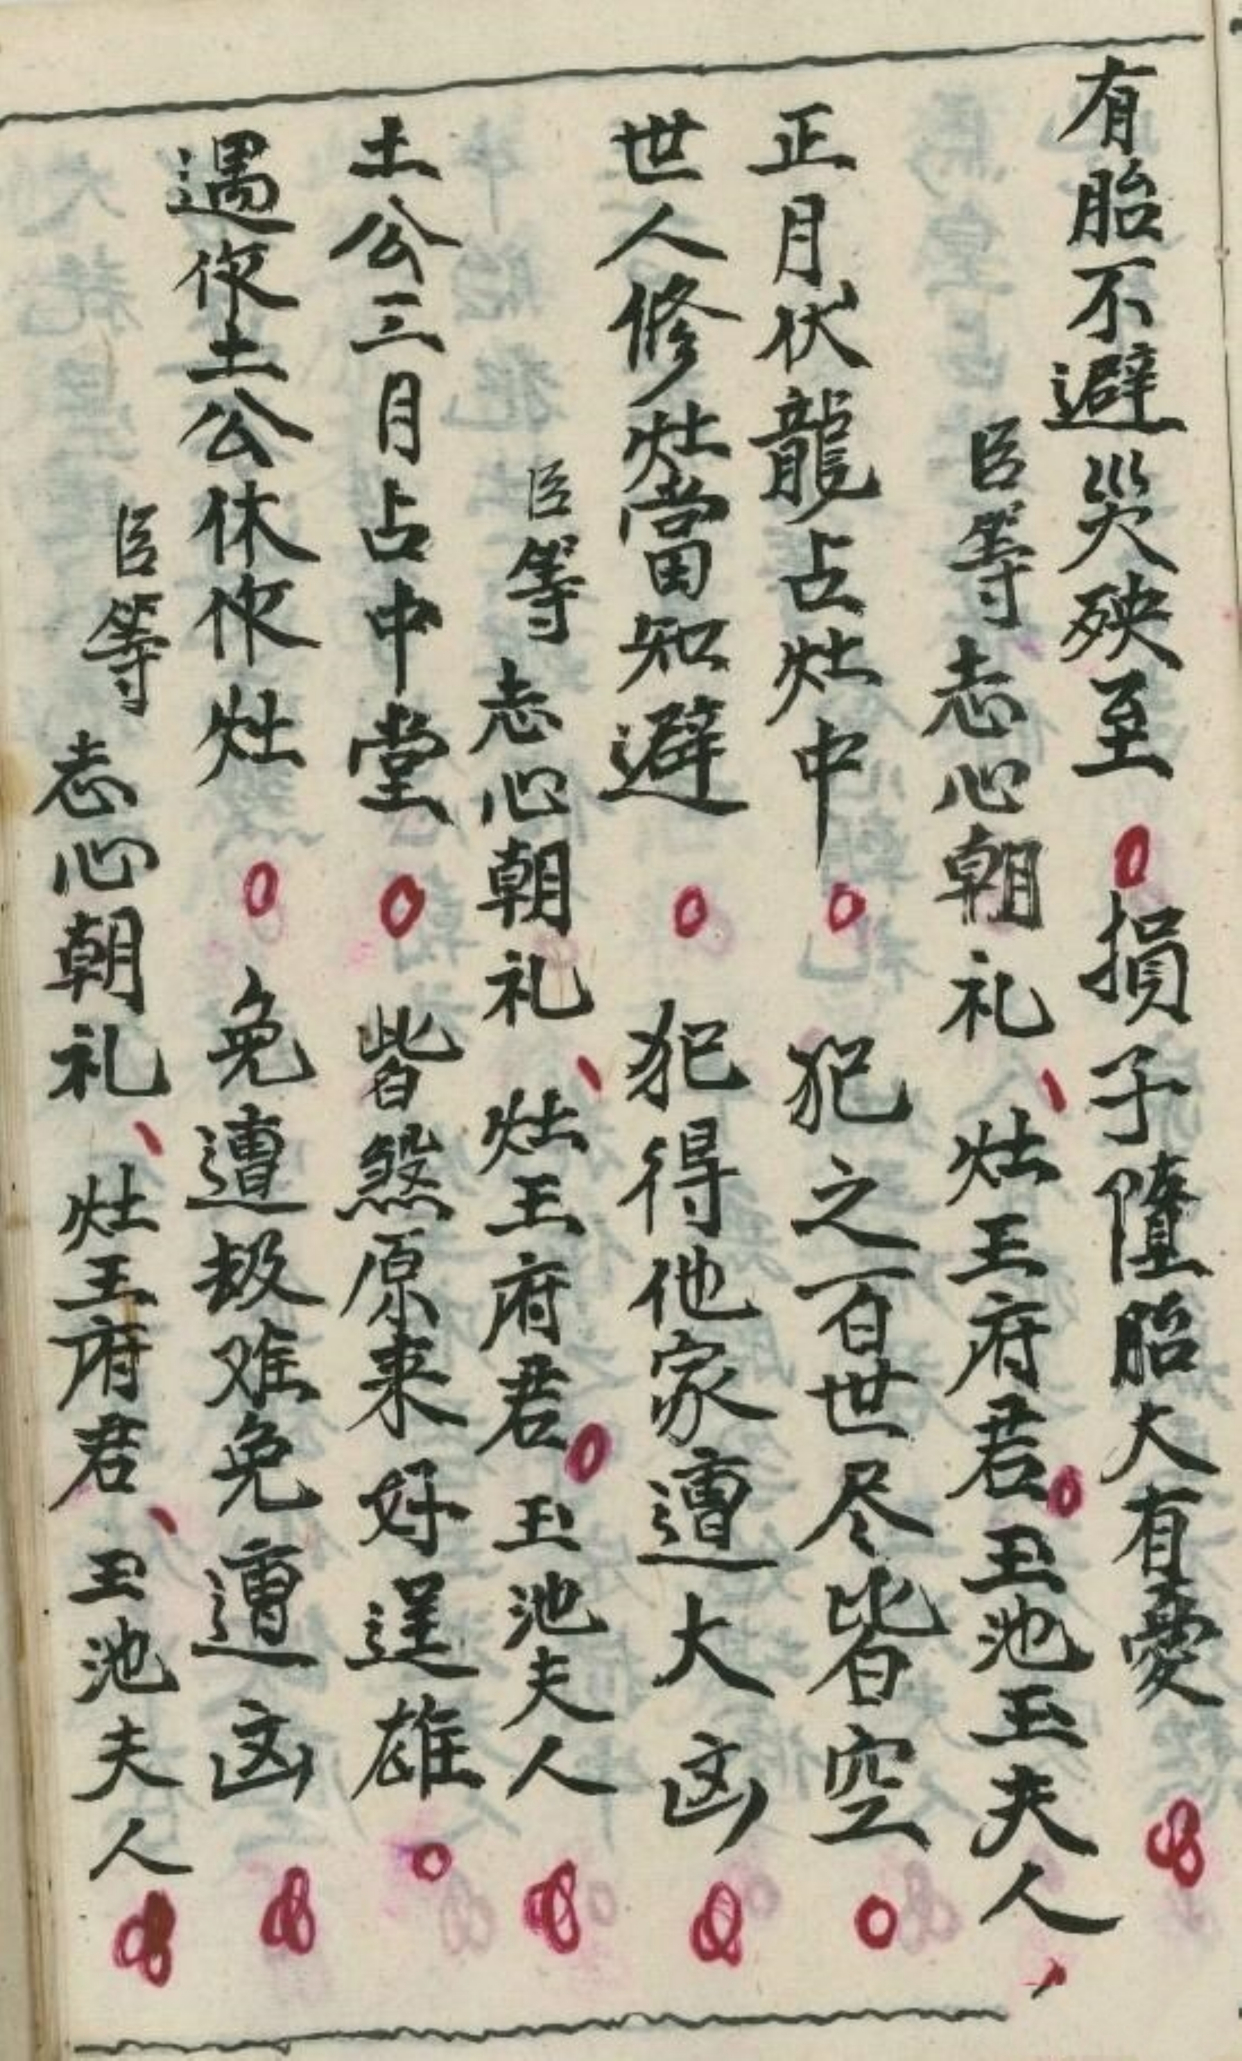 有胎不避災殃至損子墮胎大有憂
臣等志心朝礼、灶王府君玉池玉夫人
正月伏龍占灶中犯之百世尽皆空
世人修灶當知避犯得他家遭大凶
臣等志心朝礼、灶王府君玉池夫人
土公三月占中堂皆煞原来好逞雄
遇作土公休作灶免遭劫难免遭凶
臣等志心朝礼、灶王府君、玉池夫人